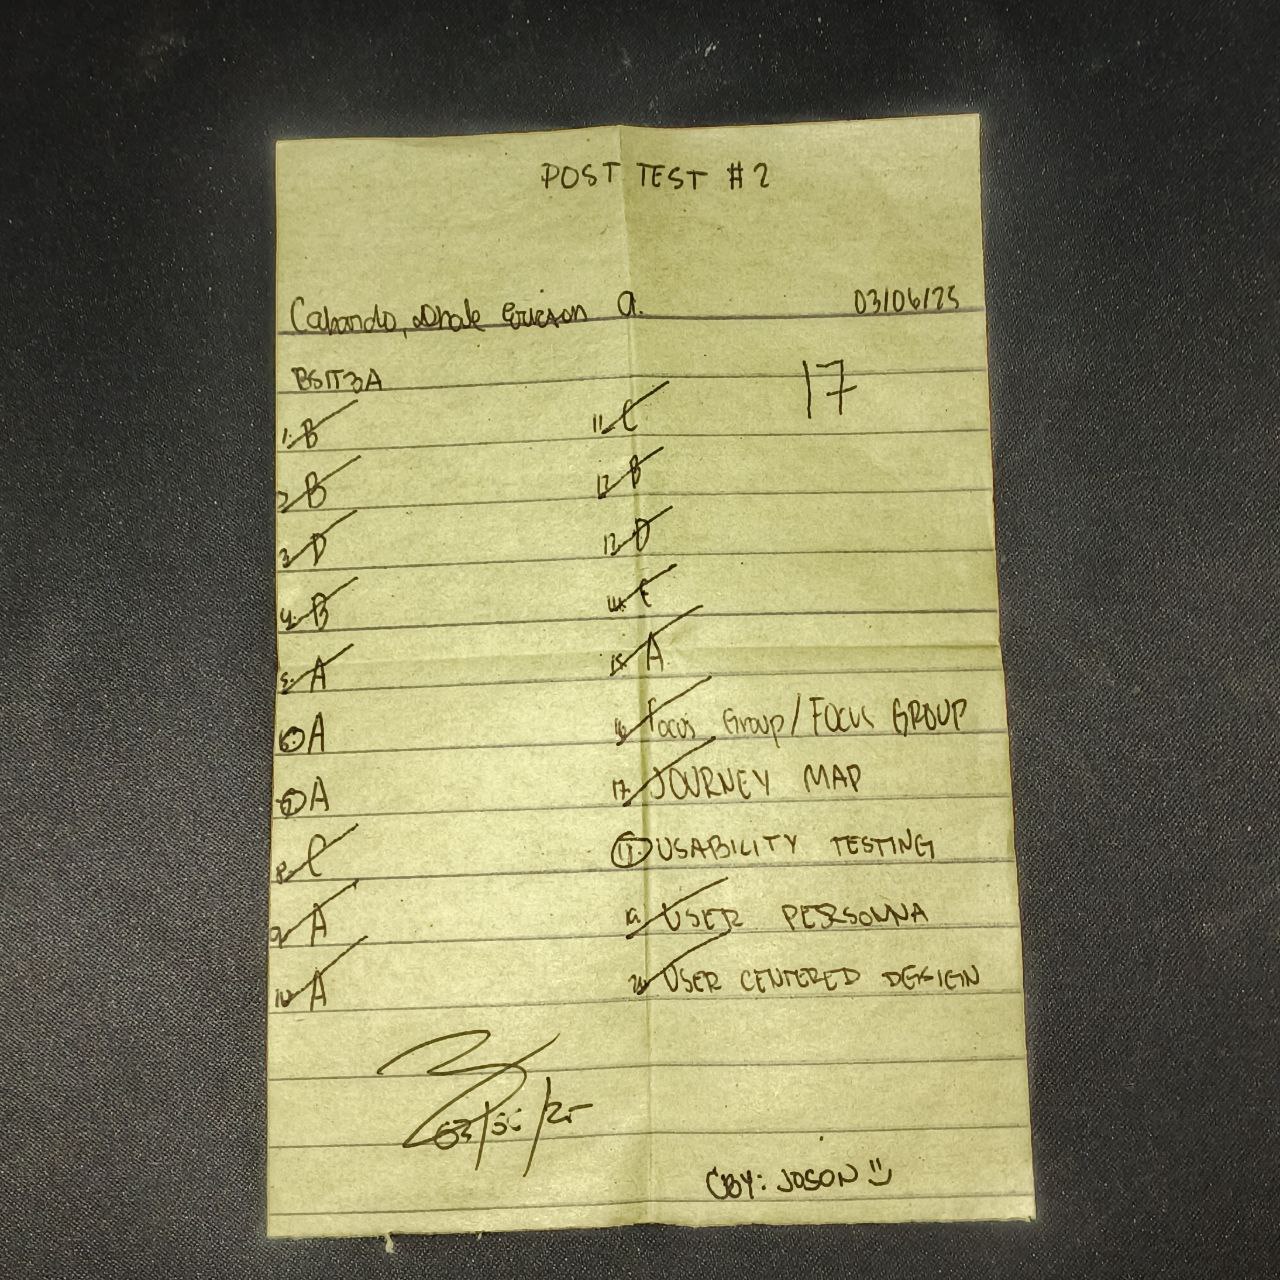 POST TEST #2
Cabando, Dhale Ericson A. 03/06/25
BSIT3A
17
1. B
2. B
3. D
4. B
5. A
6. A
7. A
8. C
9. A
10. A
11. C
12. B
13. D
14. C
15. A.
16. Focus Group/FOCUS GROUP
17. JOURNEY MAP
USABILITY TESTING
19. USER PERSONNA
20. USER CENTERED DESIGN
03/06/25
CBY: JOSON